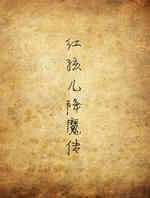 红孩儿降魔传